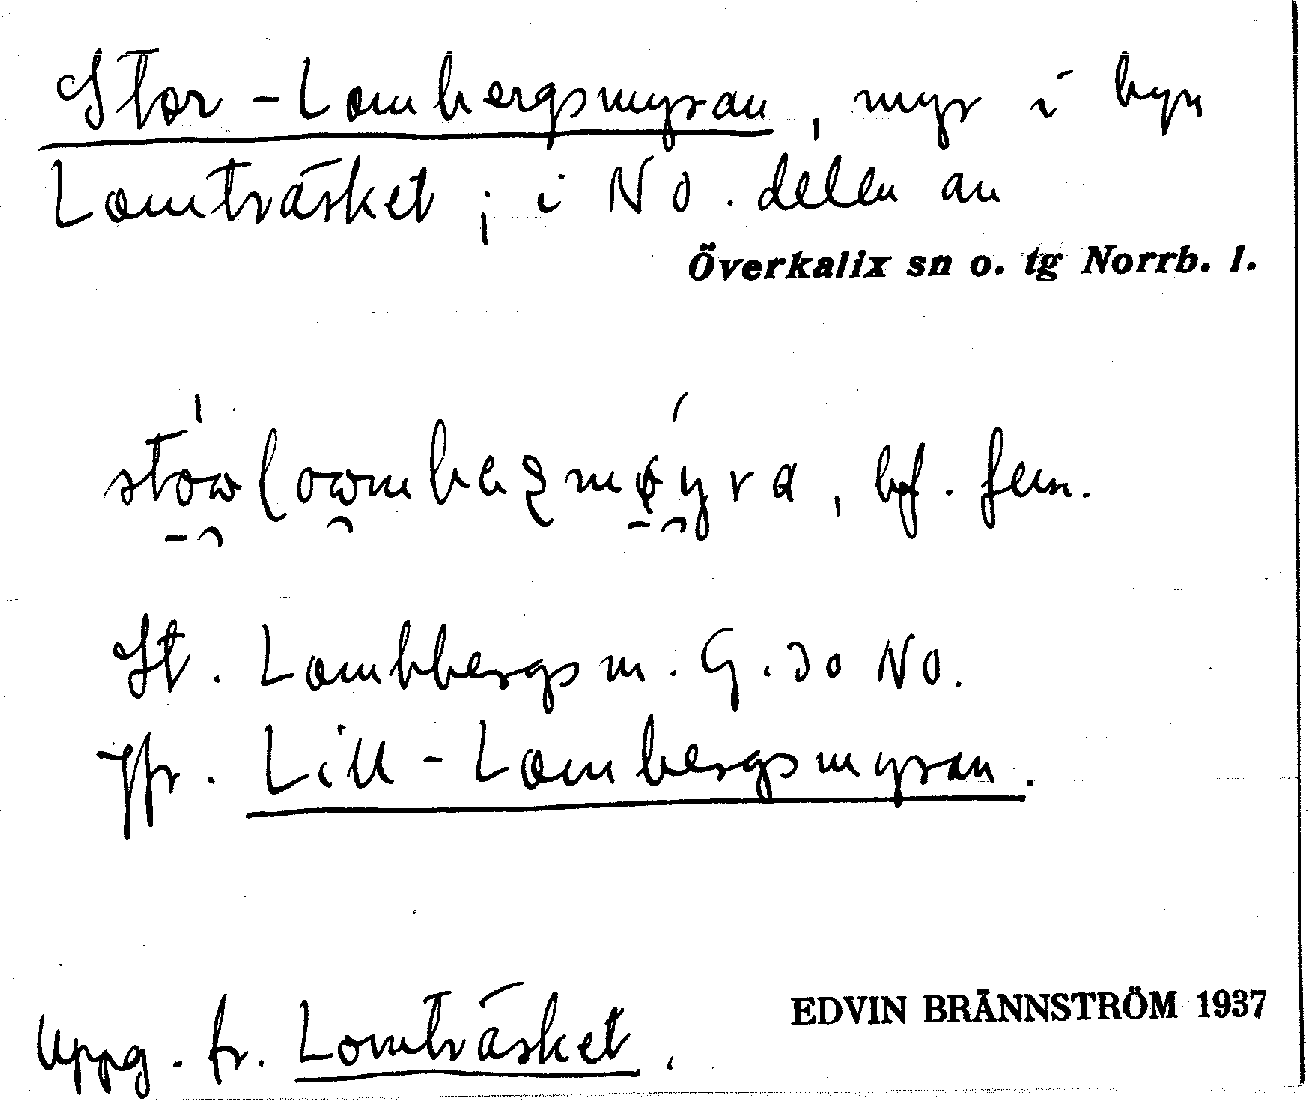 Stor-Lombergsmyran, myr i byn
Lomträsket; i NO. delen av
Överkalix sn o. tg Norrb. l.
bf. fem.
St. Lombbergsm. G. 30 NO.
Jfr. Lill-Lombergsmyran.
EDVIN BRÄNNSTRÖM 1937
Uppg. fr. Lomträsket.